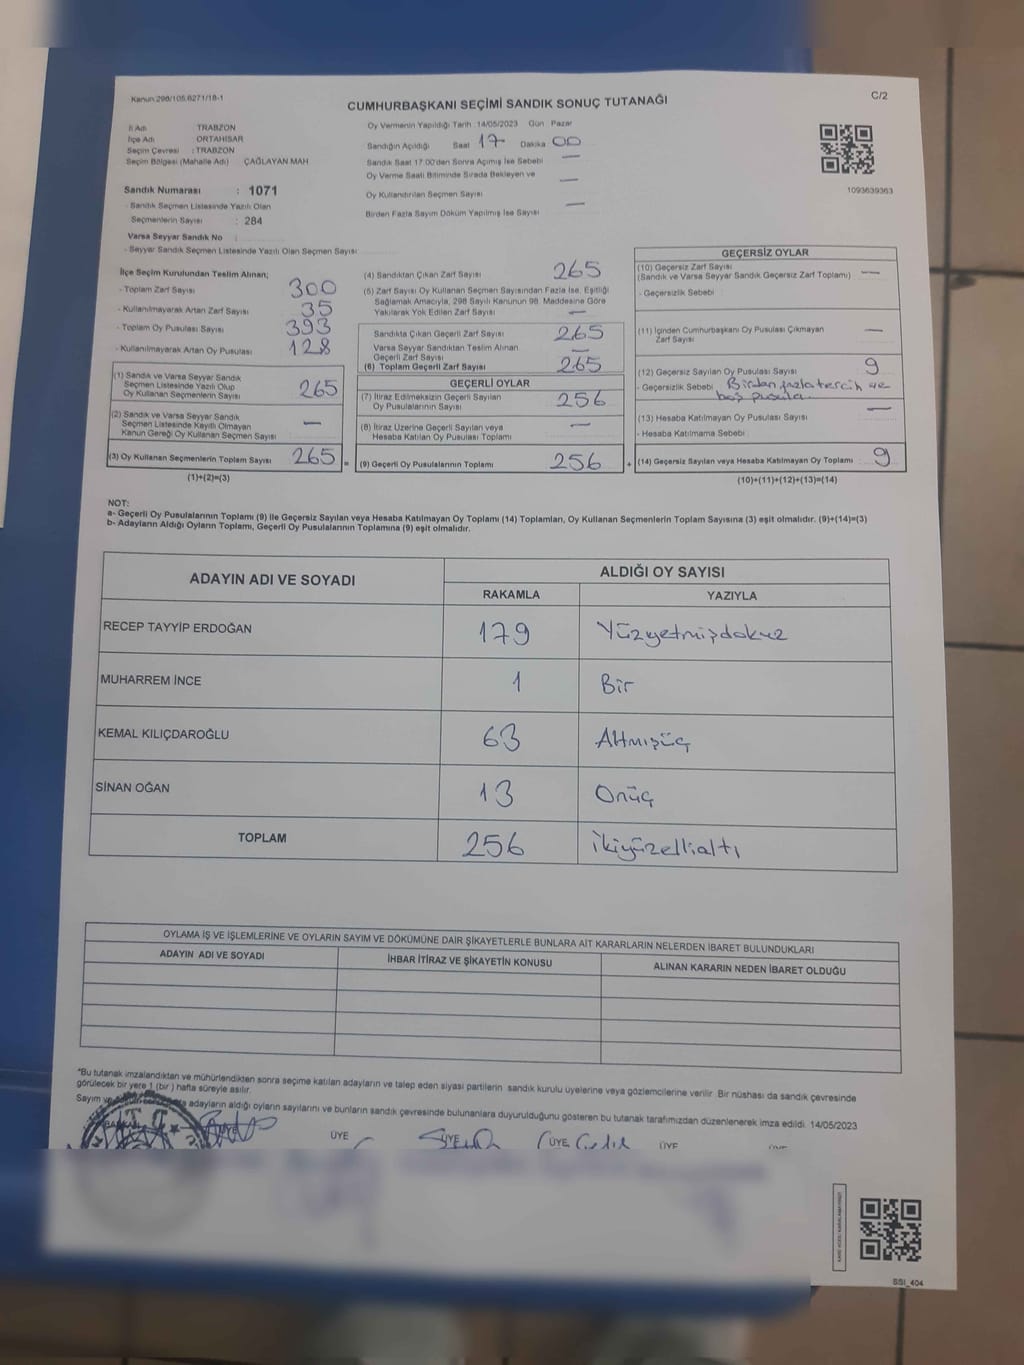 Kanun 298/105,6271/18-1
C/2
CUMHURBAŞKANI SEÇİMİ SANDIK SONUÇ TUTANAĞI
İl Adı TRABZON
İlçe Adı ORTAHİSAR
Seçim Çevresi : TRABZON
Seçim Bölgesi (Mahalle Adı) ÇAĞLAYAN MAH
Sandık Numarası : 1071
- Sandık Seçmen Listesinde Yazılı Olan
Seçmenlerin Sayısı : 284
Varsa Seyyar Sandık No
- Seyyar Sandık Seçmen Listesinde Yazılı Olan Seçmen Sayısı
Oy Vermenin Yapıldığı Tarih :14/05/2023 Gün Pazar
Sandığın Açıldığı Saat 17 Dakika 00
Sandık Saat 17.00'den Sonra Açımış İse Sebebi —
Oy Verme Saati Bitiminde Sırada Bekleyen ve
Oy Kullandırılan Seçmen Sayısı —
Birden Fazla Sayım Döküm Yapılmış İse Sayısı —
1093639363
İlçe Seçim Kurulundan Teslim Alınan;
- Toplam Zarf Sayısı 300
- Kullanılmayarak Artan Zarf Sayısı 35
- Toplam Oy Pusulası Sayısı 393
- Kullanılmayarak Artan Oy Pusulası 128
(1) Sandık ve Varsa Seyyar Sandık
Seçmen Listesinde Yazılı Olup
Oy Kullanan Seçmenlerin Sayısı 265
(2) Sandık ve Varsa Seyyar Sandık
Seçmen Listesinde Kayıtlı Olmayan
Kanun Gereği Oy Kullanan Seçmen Sayısı —
(3) Oy Kullanan Seçmenlerin Toplam Sayısı 265 =
(1)+(2)=(3)
(4) Sandıktan Çıkan Zarf Sayısı 265
(5) Zarf Sayısı Oy Kullanan Seçmen Sayısından Fazla İse, Eşitliği
Sağlamak Amacıyla, 298 Sayılı Kanunun 98. Maddesine Göre
Yakılarak Yok Edilen Zarf Sayısı —
Sandıkta Çıkan Geçerli Zarf Sayısı 265
Varsa Seyyar Sandıktan Teslim Alınan
Geçerli Zarf Sayısı —
(6) Toplam Geçerli Zarf Sayısı 265
GEÇERLİ OYLAR
(7) İtiraz Edilmeksizin Geçerli Sayılan
Oy Pusulalarının Sayısı 256
(8) İtiraz Üzerine Geçerli Sayılan veya
Hesaba Katılan Oy Pusulası Toplamı —
(9) Geçerli Oy Pusulalarının Toplamı 256 +
GEÇERSİZ OYLAR
(10) Geçersiz Zarf Sayısı
(Sandık ve Varsa Seyyar Sandık Geçersiz Zarf Toplamı) —
- Geçersizlik Sebebi
(11) İçinden Cumhurbaşkanı Oy Pusulası Çıkmayan
Zarf Sayısı —
(12) Geçersiz Sayılan Oy Pusulası Sayısı 9
- Geçersizlik Sebebi Birden fazla tercih ve
boş pusula
(13) Hesaba Katılmayan Oy Pusulası Sayısı —
- Hesaba Katılmama Sebebi
(14) Geçersiz Sayılan veya Hesaba Katılmayan Oy Toplamı 9
(10)+(11)+(12)+(13)=(14)
NOT:
a- Geçerli Oy Pusulalarının Toplamı (9) ile Geçersiz Sayılan veya Hesaba Katılmayan Oy Toplamı (14) Toplamları, Oy Kullanan Seçmenlerin Toplam Sayısına (3) eşit olmalıdır. (9)+(14)=(3)
b- Adayların Aldığı Oyların Toplamı, Geçerli Oy Pusulalarının Toplamına (9) eşit olmalıdır.
ADAYIN ADI VE SOYADI ALDIĞI OY SAYISI
RAKAMLA YAZIYLA
RECEP TAYYİP ERDOĞAN 179 Yüzyetmişdokuz
MUHARREM İNCE 1 Bir
KEMAL KILIÇDAROĞLU 63 Altmışüç
SİNAN OĞAN 13 Onüç
TOPLAM 256 İkiyüzellialtı
OYLAMA İŞ VE İŞLEMLERİNE VE OYLARIN SAYIM VE DÖKÜMÜNE DAİR ŞİKAYETLERLE BUNLARA AİT KARARLARIN NELERDEN İBARET BULUNDUKLARI
ADAYIN ADI VE SOYADI İHBAR İTİRAZ VE ŞİKAYETİN KONUSU ALINAN KARARIN NEDEN İBARET OLDUĞU
*Bu tutanak imzalandıktan ve mühürlendikten sonra seçime katılan adayların ve talep eden siyasi partilerin sandık kurulu üyelerine veya gözlemcilerine verilir. Bir nüshası da sandık çevresinde
görülecek bir yere 1 (bir ) hafta süreyle asılır.
Sayım ve adayların aldığı oyların sayılarını ve bunların sandık çevresinde bulunanlara duyurulduğunu gösteren bu tutanak tarafımızdan düzenlenerek imza edildi. 14/05/2023
ÜYE ÜYE ÜYE ÜYE ÜYE
BSI_404